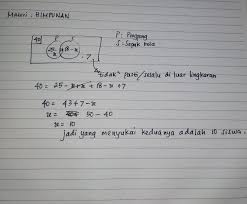 Materi : HIMPUNAN
P : Pingpong
S : Sepak bola
40 P S
25-x x 18-x
. 7
tidak² pasti / selalu di luar lingkaran
40 = 25 - x + x + 18 - x + 7
40 = 43 + 7 - x
x = 50 - 40
x = 10
jadi yang menyukai keduanya adalah 10 siswa.